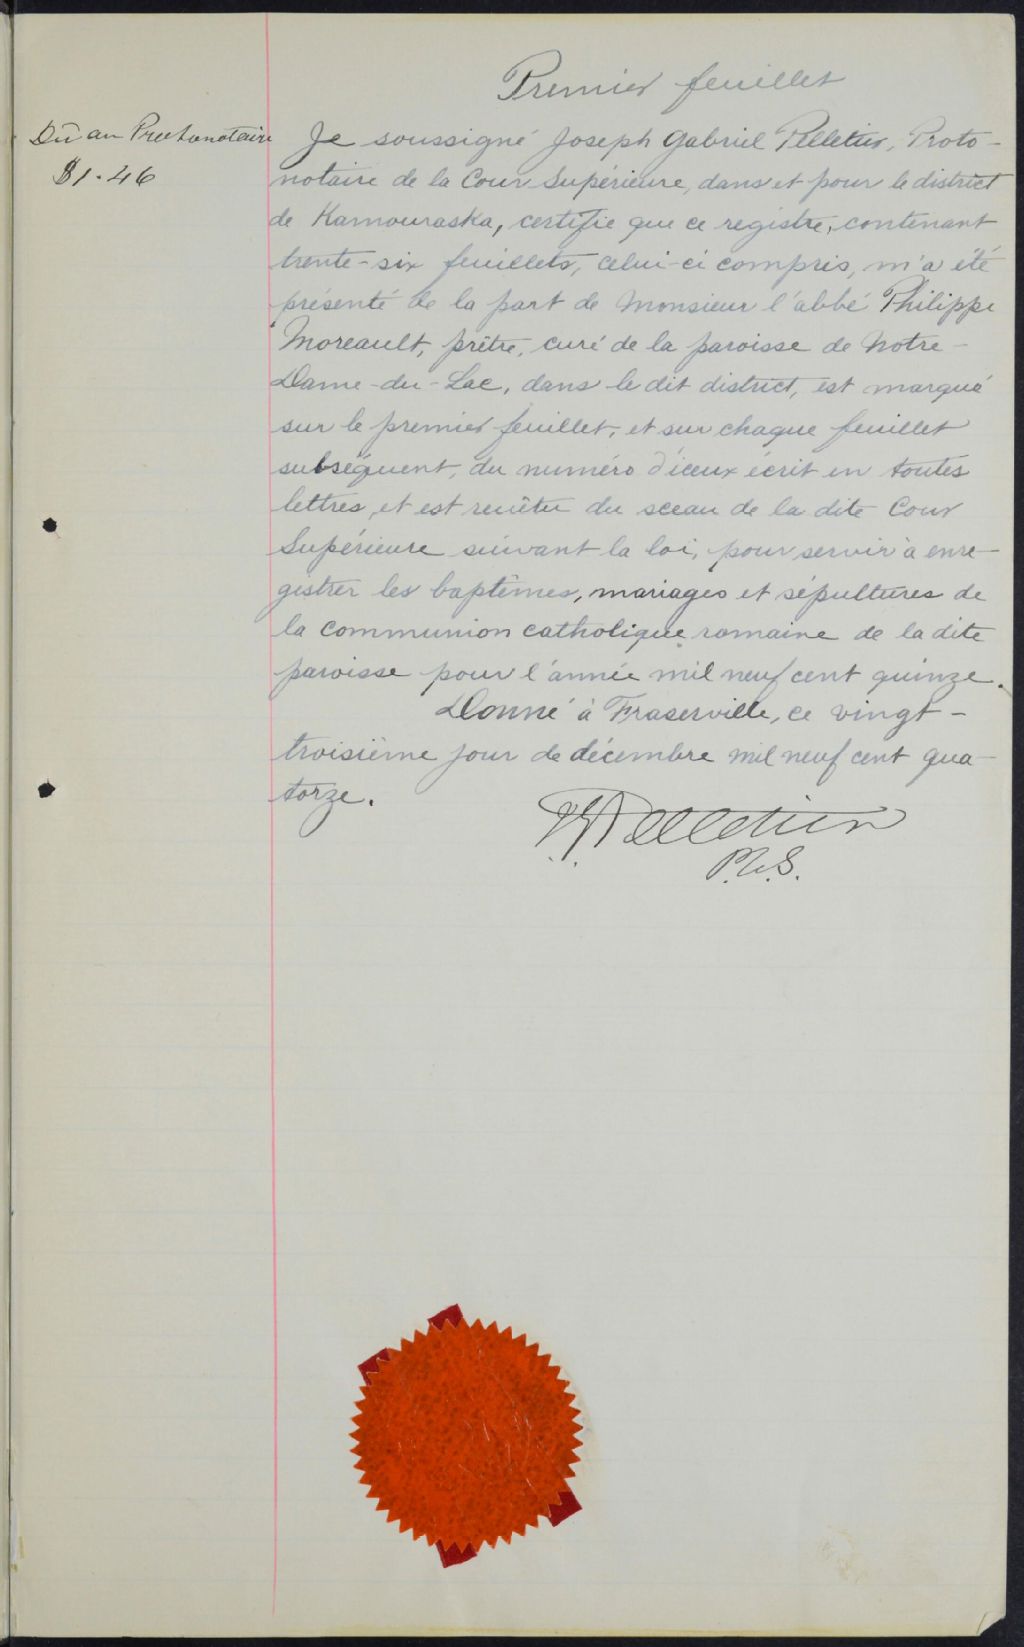 Premier feuillet
Dû au Protonotaire
$1.46
Je soussigné Joseph Gabriel Pelletier, Proto-
notaire de la Cour Supérieure, dans et pour le district
de Kamouraska, certifie que ce registre, contenant
trente-six feuillets, celui-ci compris, m'a été
présenté de la part de Monsieur l'abbé Philippe
Moreault, prêtre, curé de la paroisse de Notre-
Dame-du-Lac, dans le dit district, est marqué
sur le premier feuillet, et sur chaque feuillet
subséquent, du numéro d'iceux écrit en toutes
lettres, et est revêtu du sceau de la dite Cour
Supérieure suivant la loi, pour servir à enre-
gistrer les baptêmes, mariages et sépultures de
la communion catholique romaine de la dite
paroisse pour l'année mil neuf cent quinze.
Donné à Fraserville, ce vingt-
troisième jour de décembre mil neuf cent qua-
torze.
JGPelletier
P.C.S.